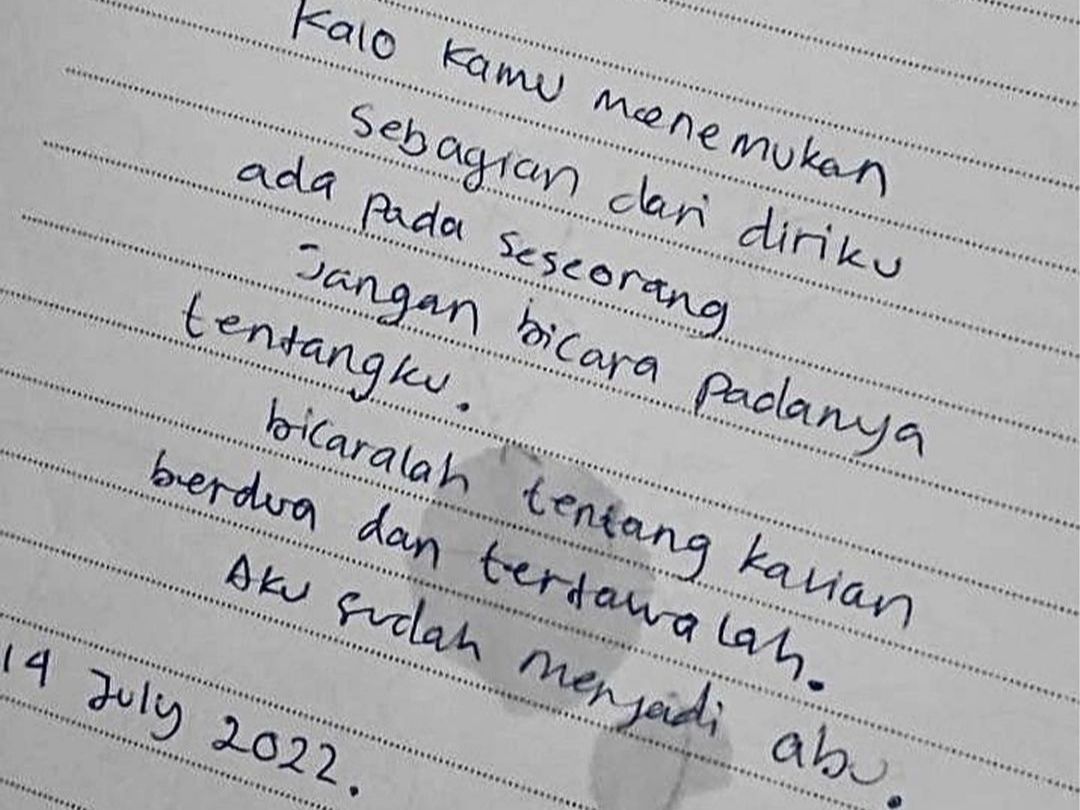 Kalo kamu menemukan
sebagian dari diriku
ada pada seseorang
Jangan bicara padanya
tentangku.
bicaralah tentang kalian
berdua dan tertawalah.
Aku sudah menjadi abu.
14 July 2022.